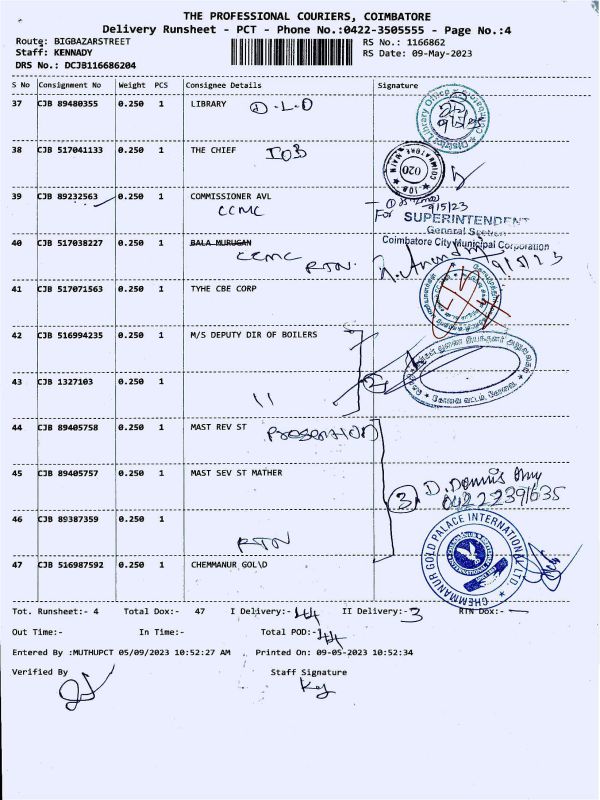 THE PROFESSIONAL COURIERS, COIMBATORE
Delivery Runsheet - PCT - Phone No.:0422-3505555 - Page No.:4
Route: BIGBAZARSTREET RS No.: 1166862
Staff: KENNADY RS Date: 09-May-2023
DRS No.: DCJB116686204
S No Consignment No Weight PCS Consignee Details Signature
37 CJB 89480355 0.250 1 LIBRARY D.L.O
38 CJB 517041133 0.250 1 THE CHIEF IOB
COIMBATORE MAIN
020
IOB
39 CJB 89232563 0.250 1 COMMISSIONER AVL
CCMC
9/5/23
For SUPERINTENDENT
General Section
Coimbatore City Municipal Corporation
40 CJB 517038227 0.250 1 BALA MURUGAN
CCMC
RTN
9/5/23
41 CJB 517071563 0.250 1 TYHE CBE CORP
42 CJB 516994235 0.250 1 M/S DEPUTY DIR OF BOILERS
2
43 CJB 1327103 0.250 1
"
44 CJB 89405758 0.250 1 MAST REV ST
45 CJB 89405757 0.250 1 MAST SEV ST MATHER
3
46 CJB 89387359 0.250 1
RTN
CHEMMANUR GOLD PALACE INTERNATIONAL LTD.
47 CJB 516987592 0.250 1 CHEMMANUR GOL\D
Tot. Runsheet:- 4 Total Dox:- 47 I Delivery:- 44 II Delivery:- 3 RTN Dox:-
Out Time:- In Time:- Total POD:- 44
Entered By :MUTHUPCT 05/09/2023 10:52:27 AM Printed On: 09-05-2023 10:52:34
Verified By Staff Signature